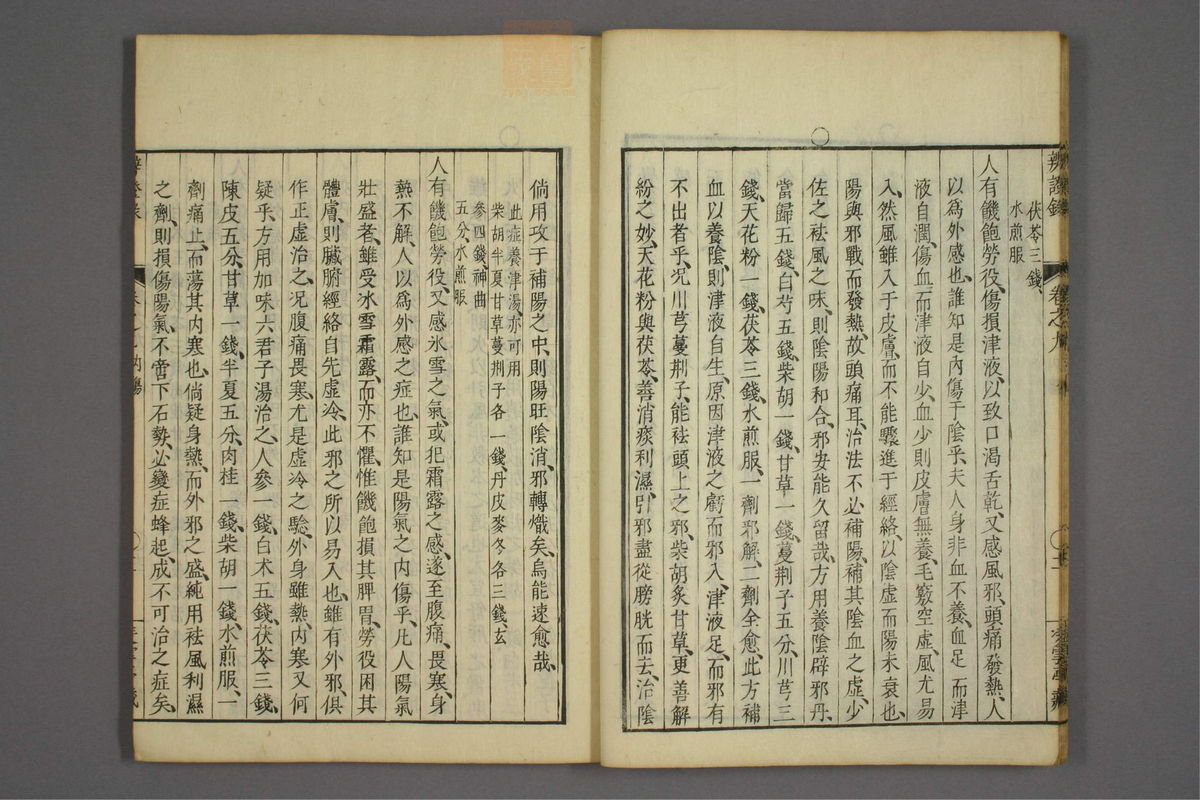 辨證錄
卷之九
茯苓三錢、
水煎服
人有饑飽勞役、傷損津液、以致口渴舌乾、又感風邪、頭痛發熱、人
以爲外感也、誰知是內傷于陰乎、夫人身非血不養、血足而津
液自潤、傷血而津液自少、血少則皮膚無養、毛竅空虛、風尤易
入、然風雖入于皮膚、而不能驟進于經絡、以陰虛而陽未衰也、
陽與邪戰而發熱、故頭痛耳、治法不必補陽、補其陰血之虛、少
佐之祛風之味、則陰陽和合、邪安能久留哉、方用養陰辟邪丹、
當歸五錢、白芍五錢、柴胡一錢、甘草一錢、蔓荆子五分、川芎三
錢、天花粉一錢、茯苓三錢、水煎服、一劑邪解、二劑全愈、此方補
血以養陰、則津液自生、原因津液之虧而邪入、津液足、而邪有
不出者乎、况川芎蔓荆子、能祛頭上之邪、柴胡炙甘草、更善解
紛之妙、天花粉與茯苓、善消痰利濕、引邪盡從膀胱而去、治陰
倘用攻于補陽之中、則陽旺陰消、邪轉熾矣、烏能速愈哉、
此症養津湯、亦可用
柴胡半夏甘草蔓荆子各一錢、丹皮麥冬各三錢、玄
參四錢、神曲
五分、水煎服
人有饑飽勞役、又感氷雪之氣、或犯霜露之感、遂至腹痛、畏寒、身
熱不解、人以爲外感之症也、誰知是陽氣之內傷乎、凡人陽氣
壯盛者、雖受冰雪霜露、而亦不懼、惟饑飽損其脾胃、勞役困其
體膚、則臟腑經絡自先虛冷、此邪之所以易入也、雖有外邪、俱
作正虛治之、况腹痛畏寒、尤是虛冷之驗、外身雖熱、內寒又何
疑乎、方用加味六君子湯治之、人參一錢、白术五錢、茯苓三錢、
陳皮五分、甘草一錢、半夏五分、肉桂一錢、柴胡一錢、水煎服、一
劑痛止、而蕩其內寒也、倘疑身熱、而外邪之盛、純用祛風利濕
之劑、則損傷陽氣、不啻下石勢、必變症蜂起、成不可治之症矣、